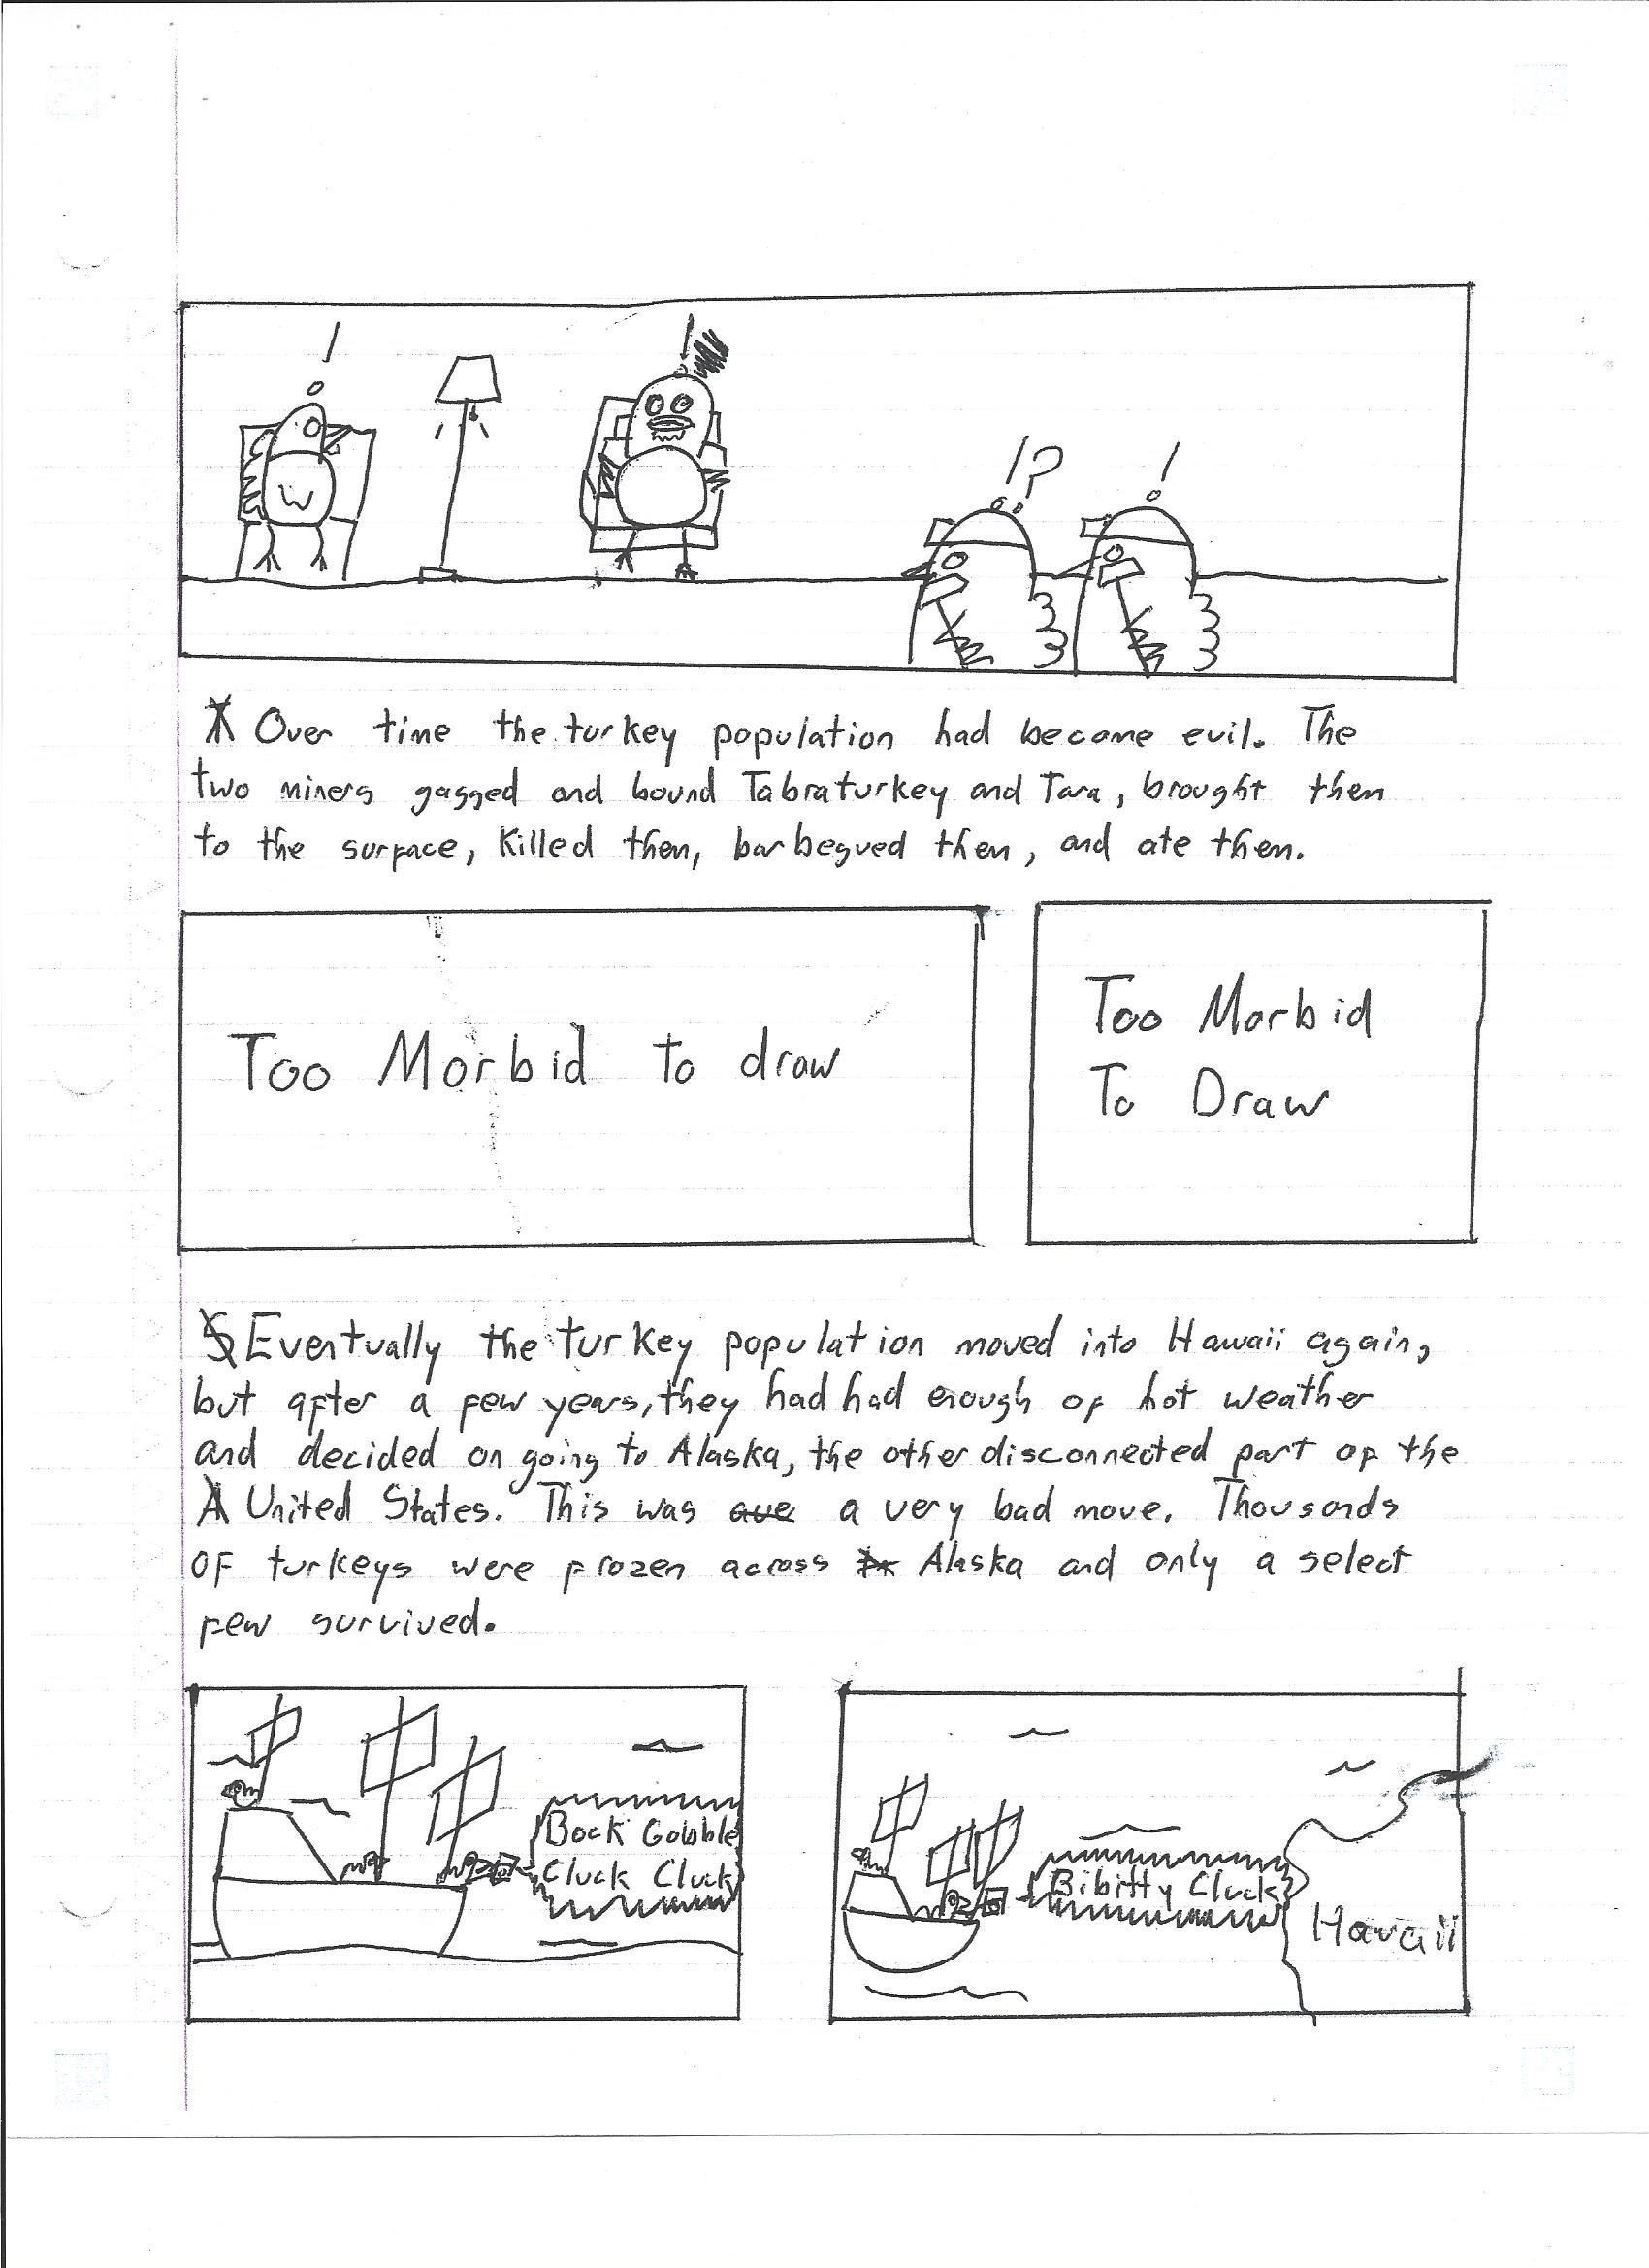 !
!
!?
!
Over time the turkey population had become evil. The
two miners gagged and bound Tabraturkey and Tara, brought them
to the surface, killed them, barbequed them, and ate them.
Too Morbid to draw
Too Morbid
To Draw
Eventually the turkey population moved into Hawaii again,
but after a few years, they had had enough of hot weather
and decided on going to Alaska, the other disconnected part of the
United States. This was a very bad move. Thousands
of turkeys were frozen across Alaska and only a select
few survived.
Bock Gobble
Cluck Cluck
Bibitty Cluck
Hawaii